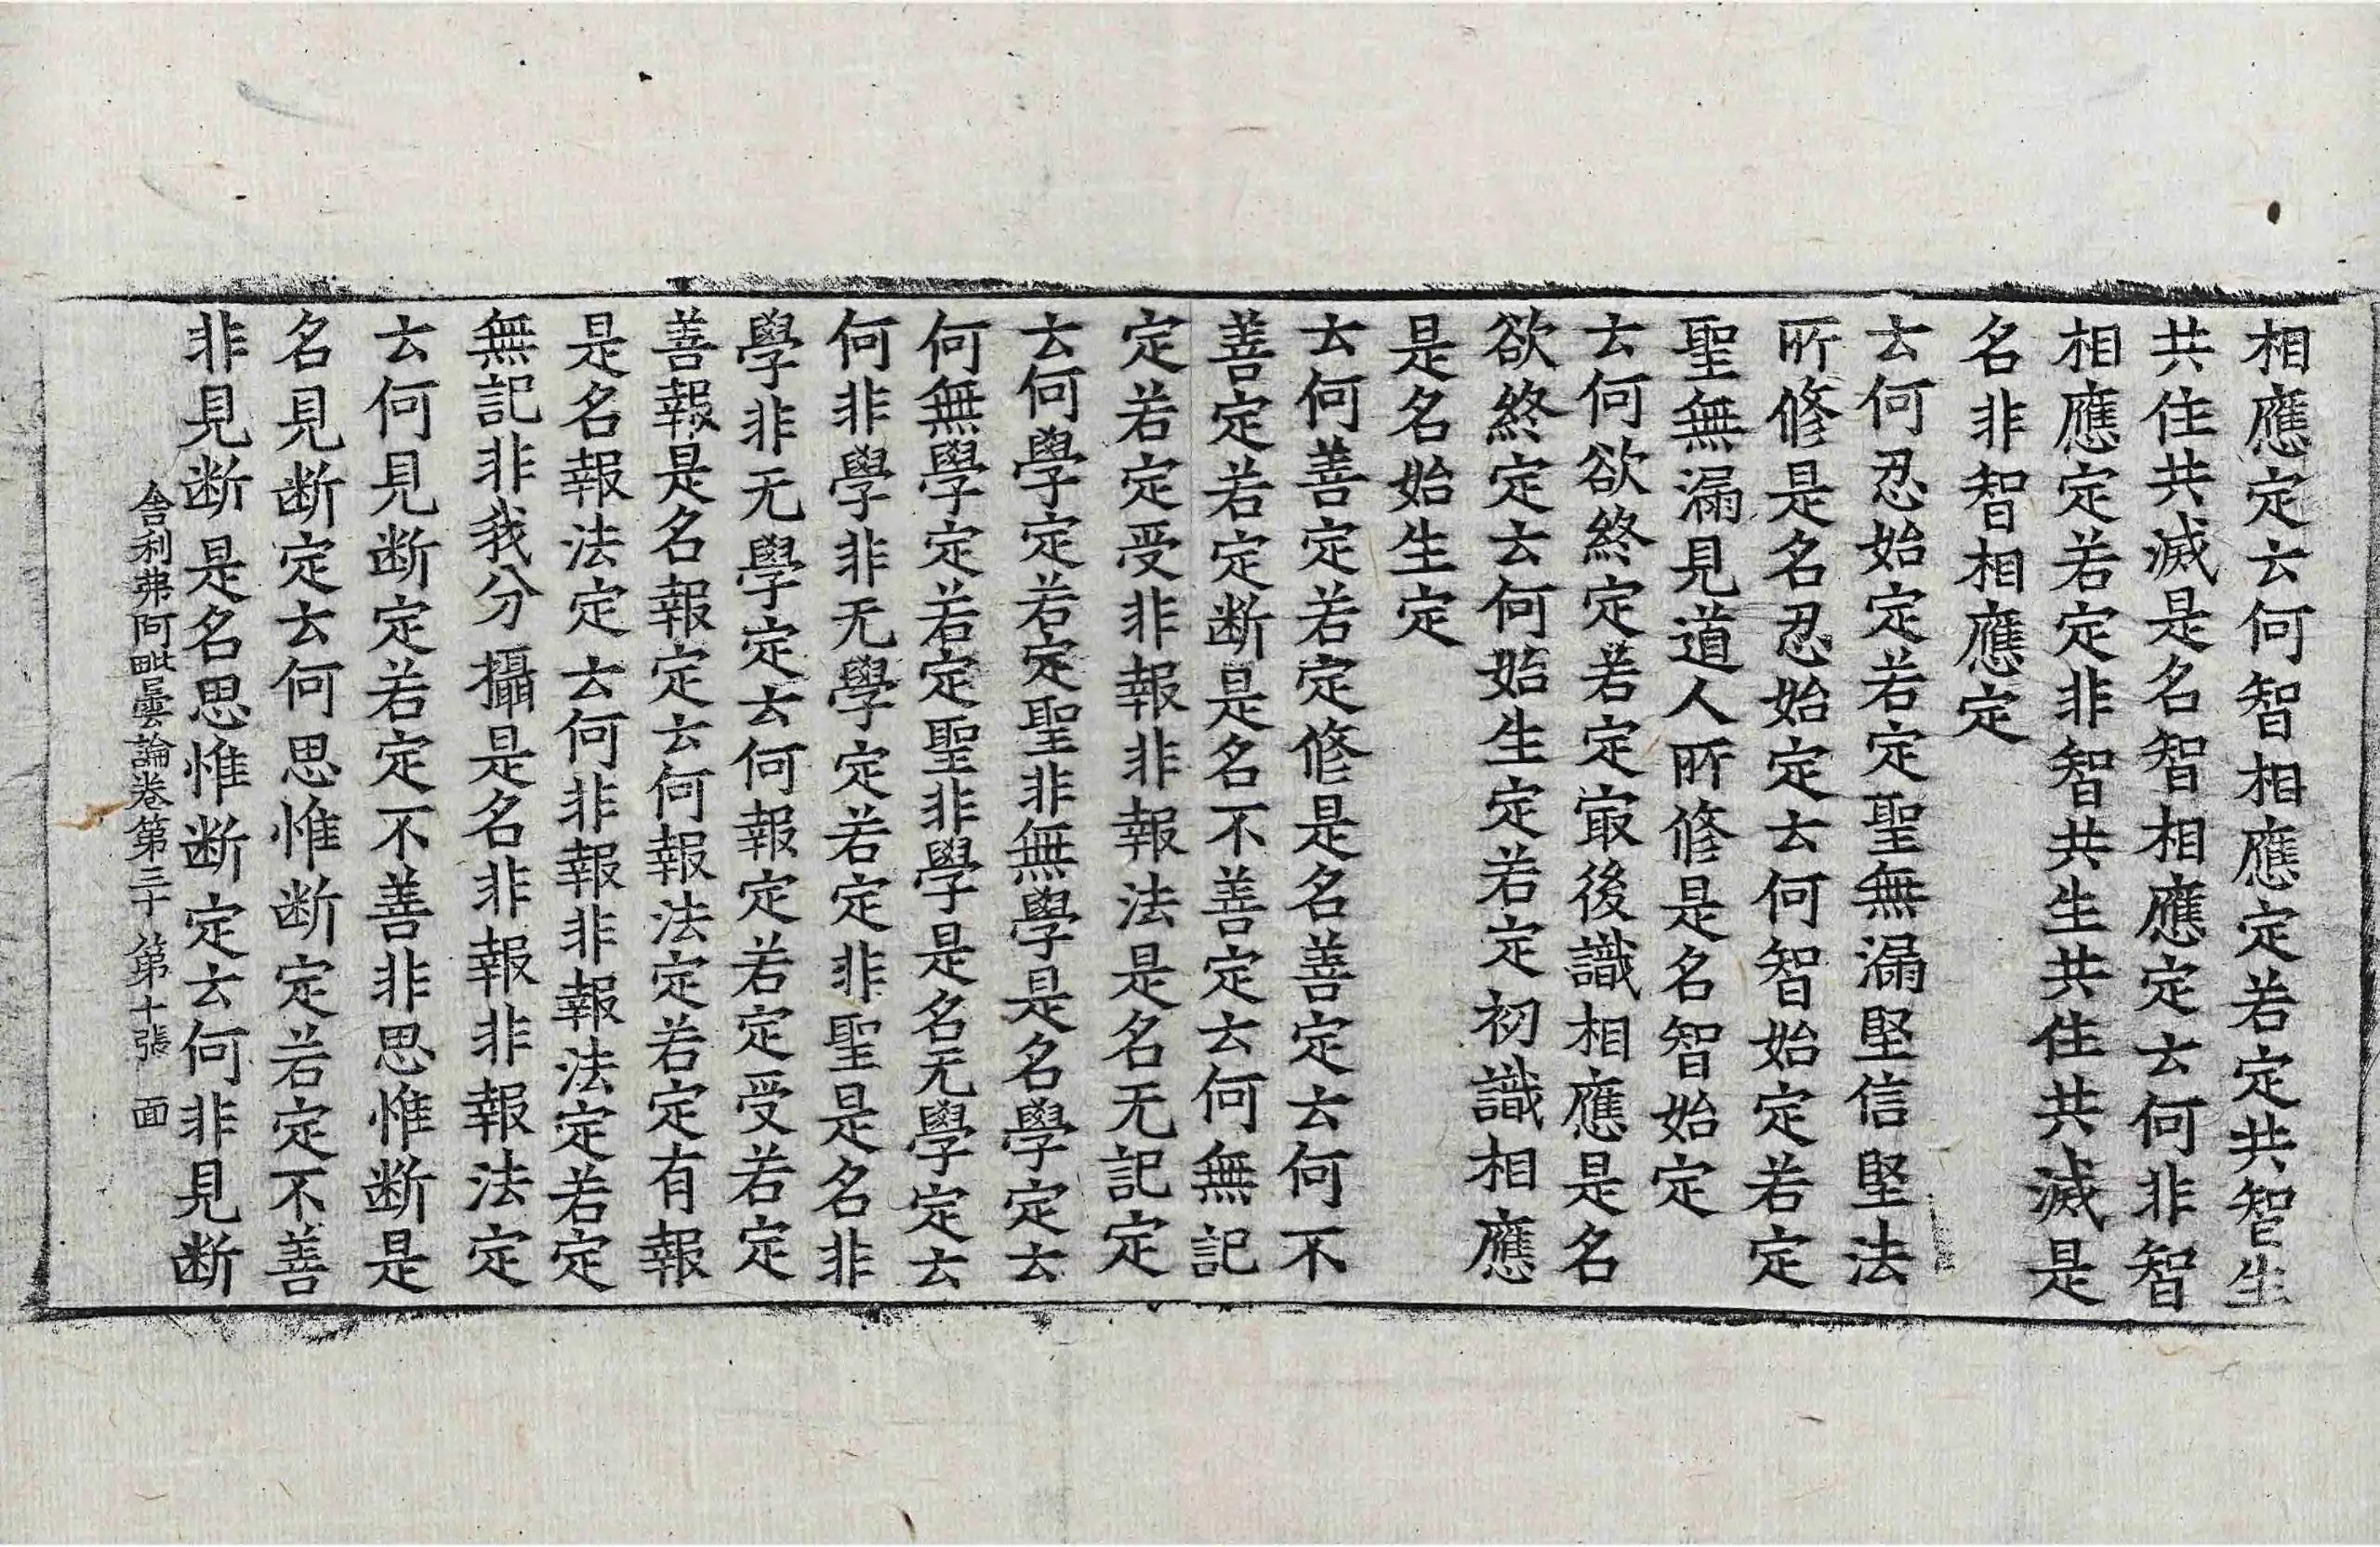 相應定去何智相應定若定共智生
共住共滅是名智相應定去何非智
相應定若定非智共生共住共滅是
名非智相應定
去何忍始定若定聖無漏堅信堅法
所修是名忍始定去何智始定若定
聖無漏見道人所修是名智始定
去何欲終定若定㝡後識相應是名
欲終定去何始生定若定初識相應
是名始生定
去何善定若定修是名善定去何不
善定若定断是名不善定去何無記
定若定受非報非報法是名无記定
去何學定若定聖非無學是名學定去
何無學定若定聖非學是名无學定去
何非學非无學定若定非聖是名非
學非无學定去何報定若定受若定
善報是名報定去何報法定若定有報
是名報法定去何非報非報法定若定
無記非我分攝是名非報非報法定
去何見断定若定不善非思惟断是
名見断定去何思惟断定若定不善
非見断是名思惟断定去何非見断
舎利弗阿毗曇論卷第三十 第十張 面